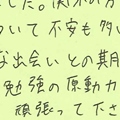 した。関東の方
ついて不安も多い
な出会いとの期
勉強の原動力
頑張って下さ